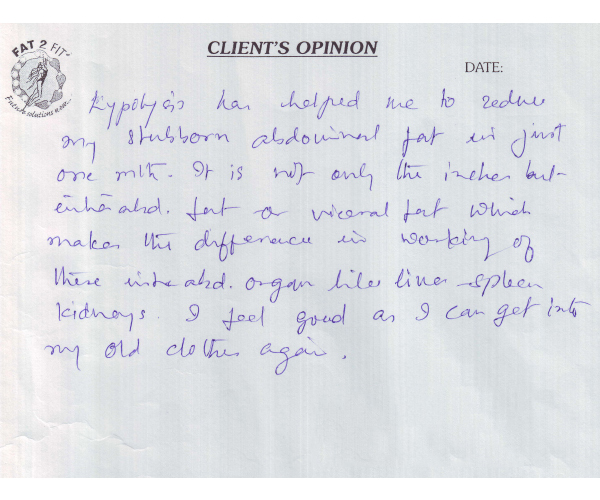 FAT 2 FIT
Future solutions now...
CLIENT'S OPINION
DATE:
Kypolysis has helped me to reduce
my stubborn abdominal fat in just
one mth. It is not only the inches but
intra abd. fat or viceral fat which
makes the difference in working of
these intra abd. organ like liver spleen
kidneys. I feel good as I can get into
my old clothes again.